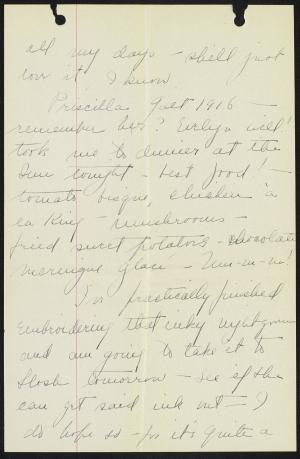 all my days – she'll just
love it, I know.
Priscilla Galt 1916 –
remember her? Evelyn will!
took me to dinner at the
Inn tonight – best food! –
tomato bisque, chicken a
la King – mushrooms –
fried sweet potatoes – chocolate
meringue glace – Um-m-m!
I've practically finished
embroidering that inky nightgown
and am going to take it to
Slosh tomorrow – see if she
can get said ink out – I
do hope so – for it's quite a